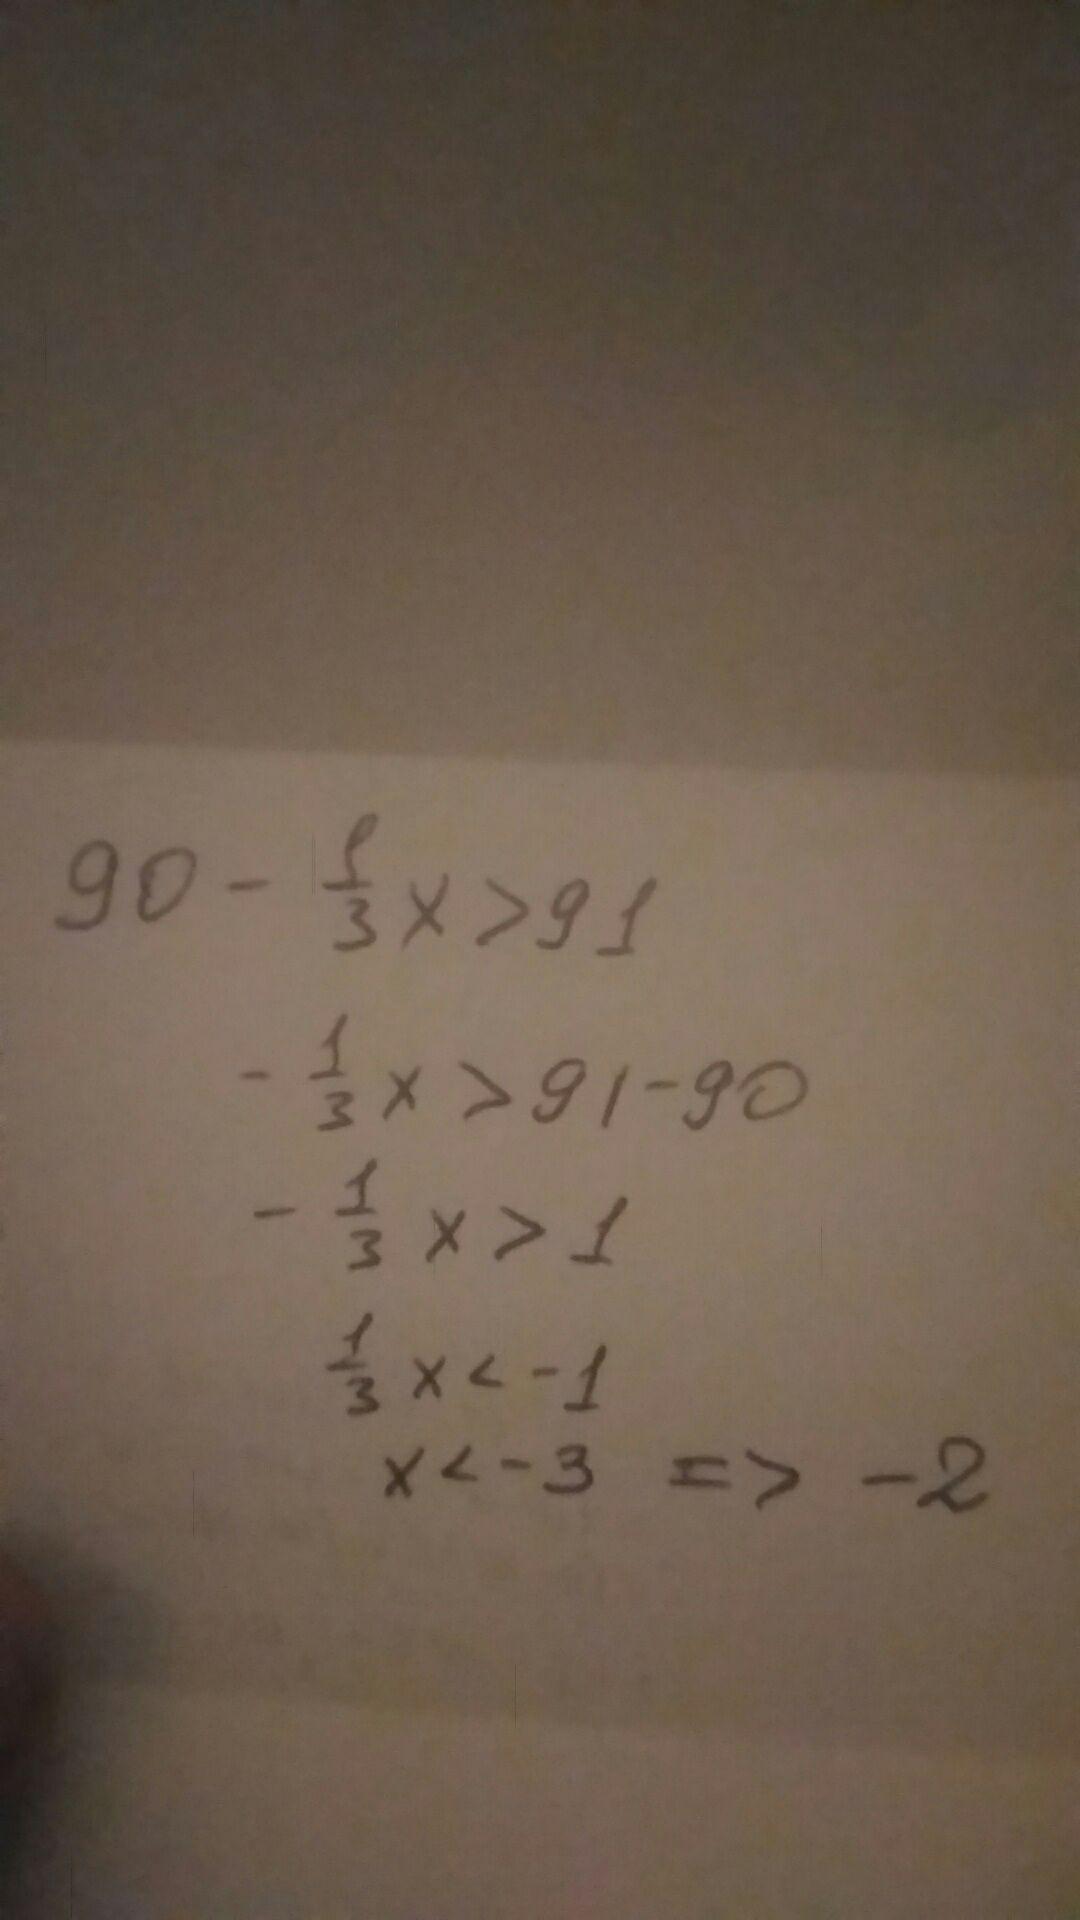 90 - 1/3 x > 91
- 1/3 x > 91 - 90
- 1/3 x > 1
1/3 x < -1
x < -3 => -2